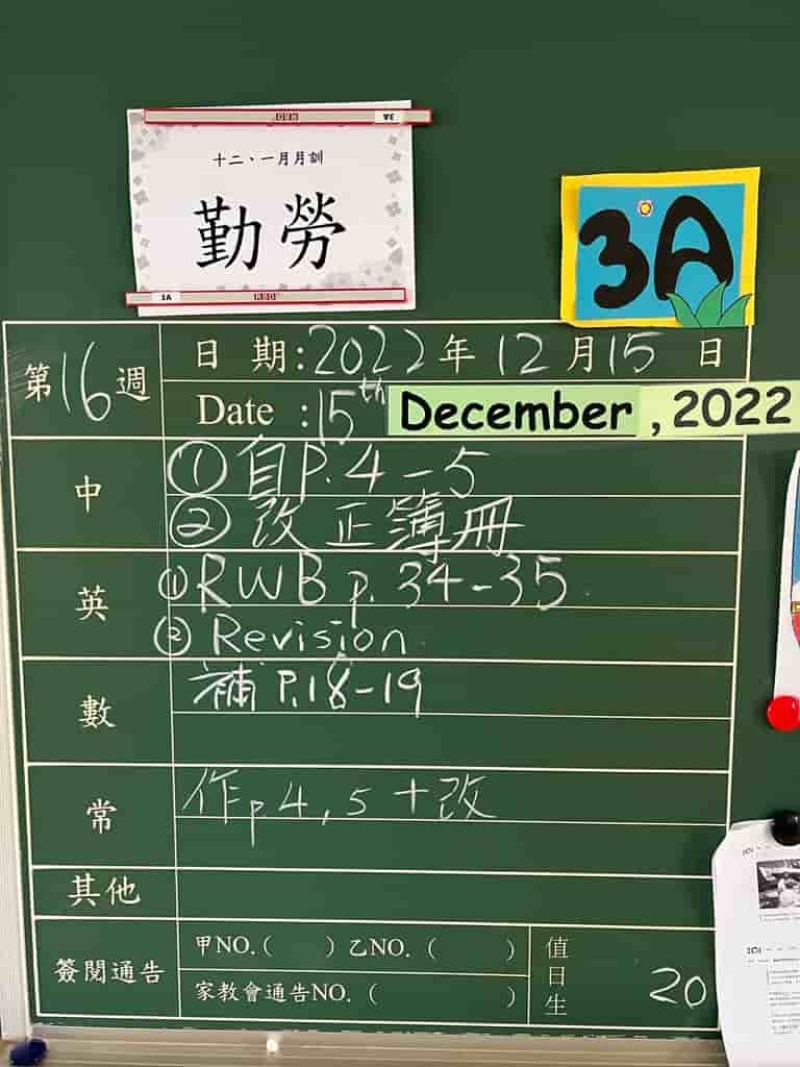 十二、一月月訓
勤勞
3A
第16週
日 期:2022年 12月15 日
Date :15th December , 2022
中
① 自P.4-5
② 改正簿冊
英
① RWB p.34-35
② Revision
數
補 P.18-19
常
作p4,5+改
其他
簽閱通告
甲NO.( ) 乙NO.( )
家教會通告NO.( )
值日生
20